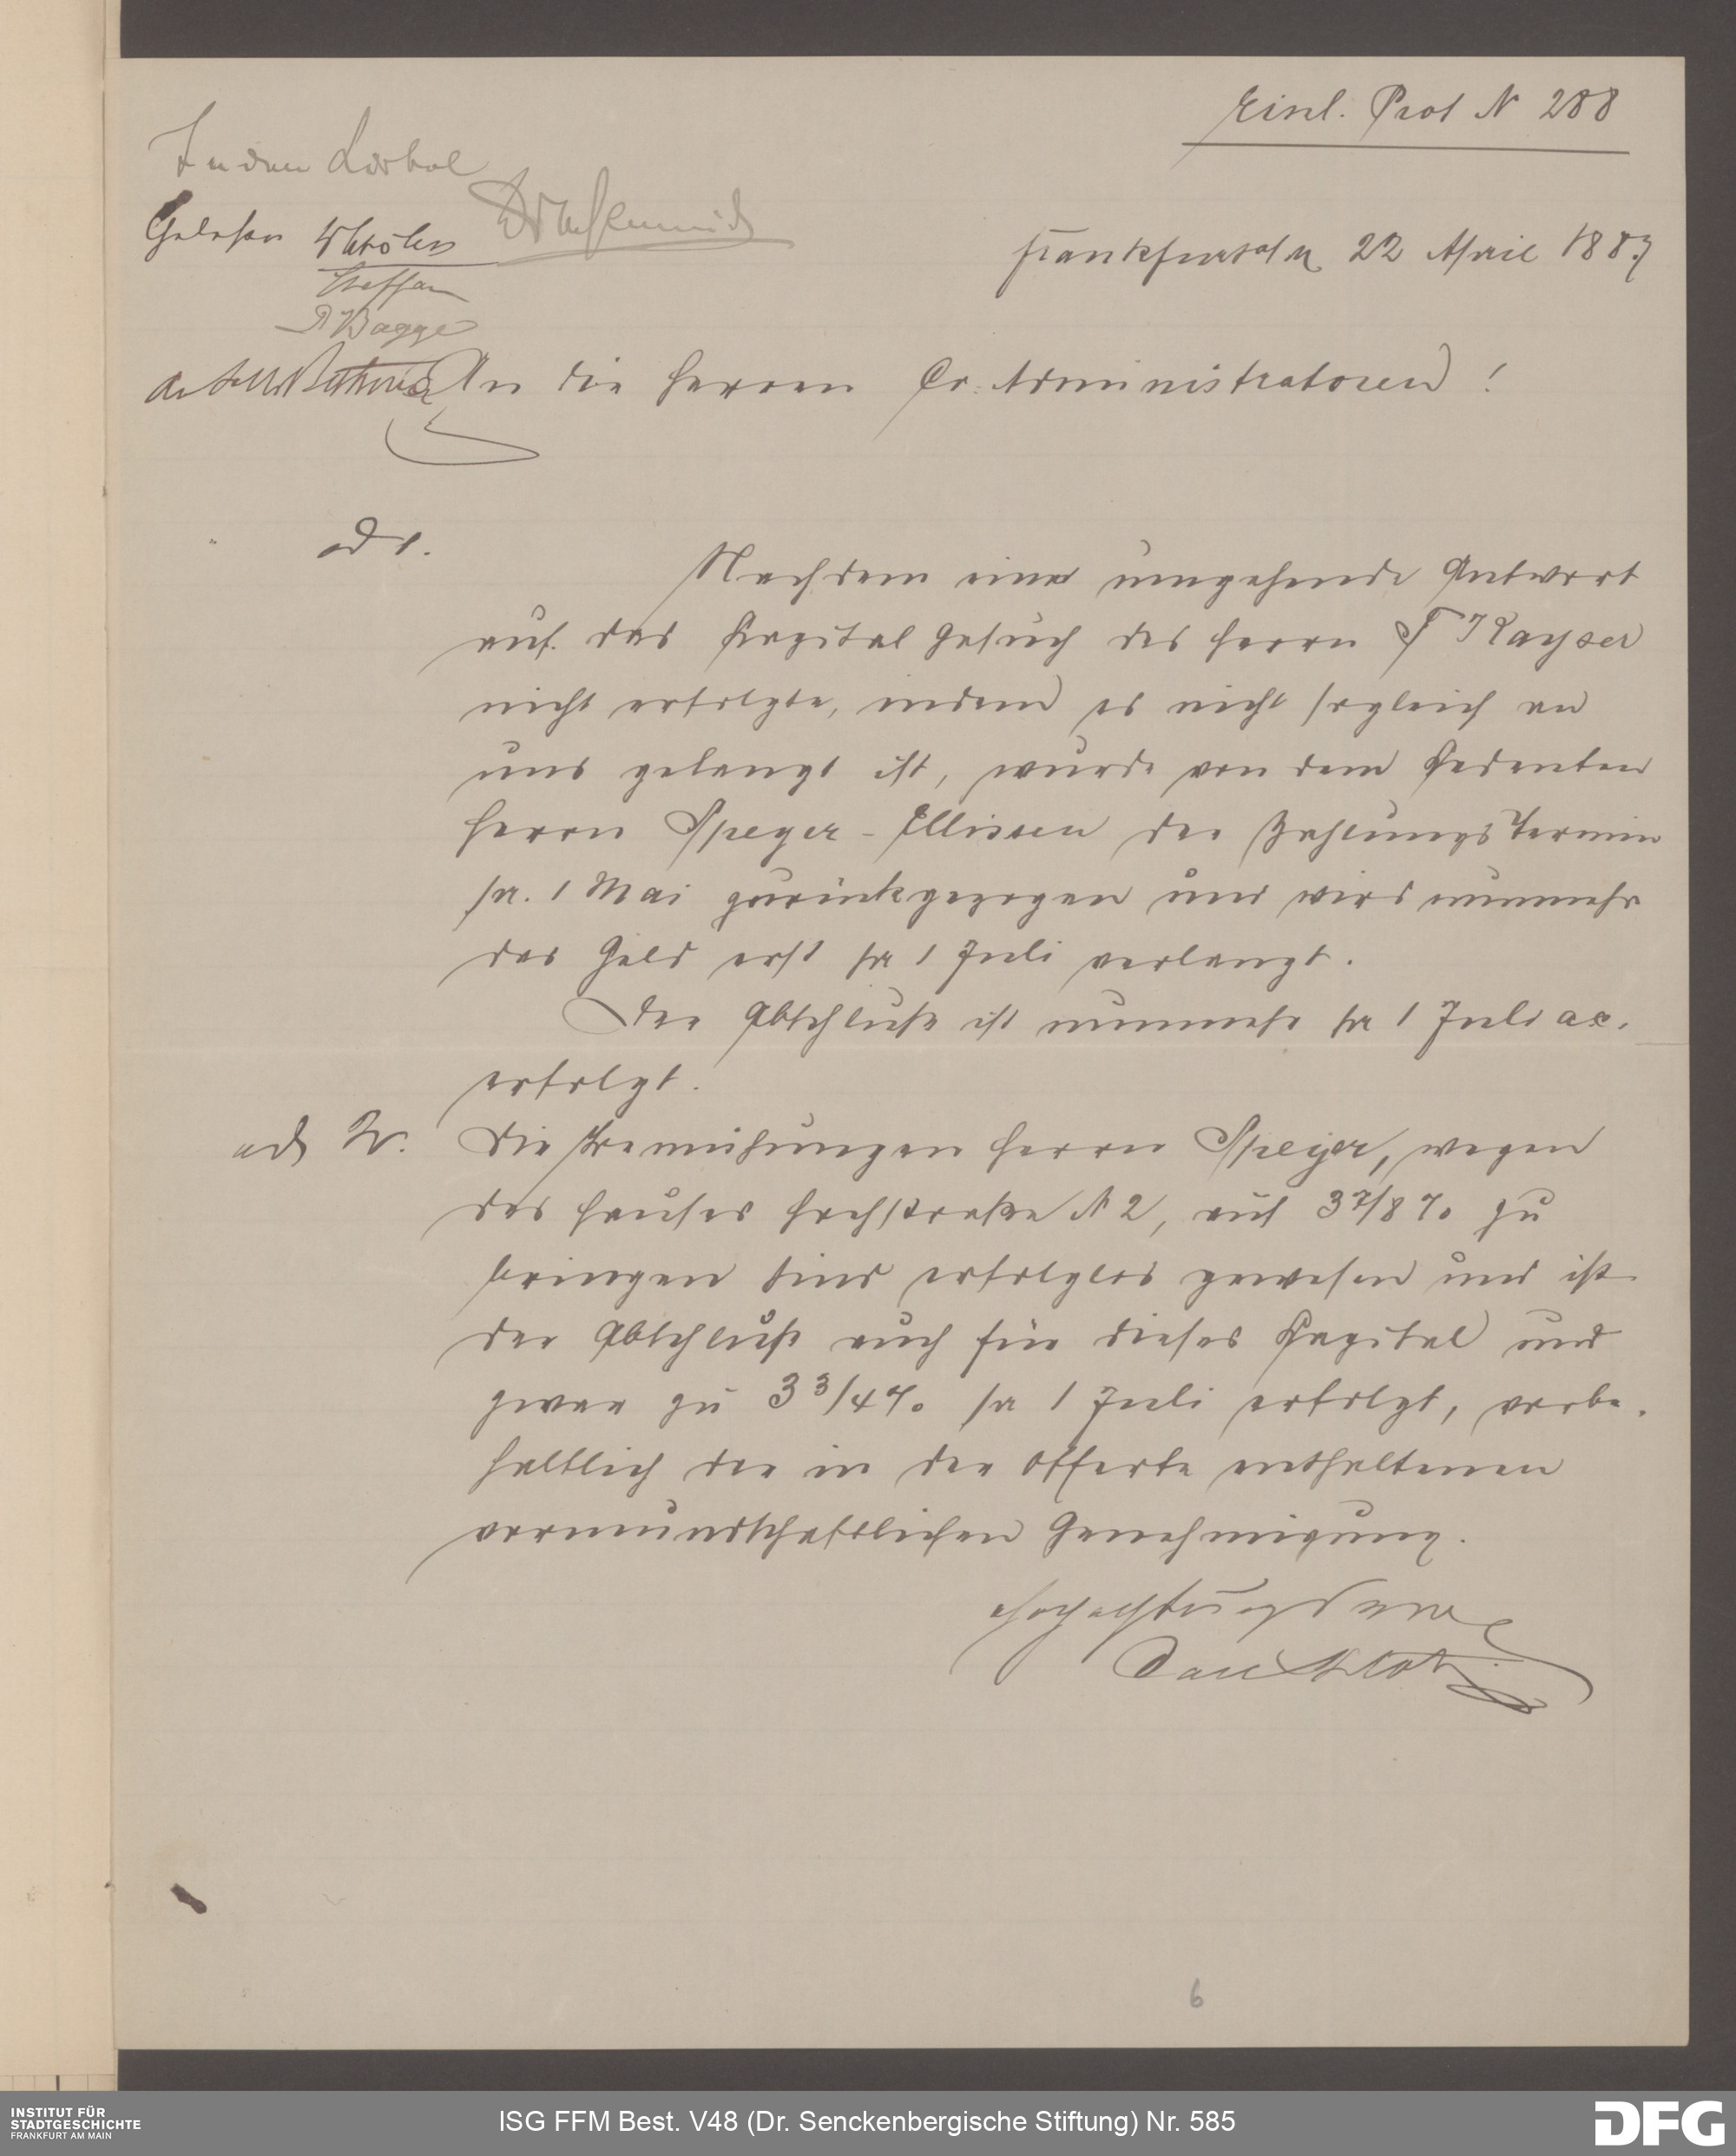 Einl. Prot N 288
Gelesen
Frankfurt a/M 22 April 1887
P Bagge
An die Herren Co. Administratoren!
ad 1.
Nachdem eine umgehende Antwort
auf das Kapital Gesuch des Herrn F Kayser
nicht erfolgte, indem es nicht sogleich an
uns gelangt ist, wurde von dem Cedenten
Herrn Speyer-Ellissen der Zahlungstermin
pr. 1 Mai zurückgezogen und wird nunmehr
das Geld erst pr 1 Juli verlangt.
Der Abschluß ist nunmehr pr 1 Juli ac.
erfolgt.
ad 2. Die Bemühungen Herrn Speyer, wegen
des Hauses Hochstraße N 2, auf 3 7/8 % zu
bringen sind erfolglos gewesen und ist
der Abschluß auch für dieses Kapital und
zwar zu 3 3/4 % pr 1 Juli erfolgt, vorbe-
haltlich der in der Offerte enthaltenen
vormundschaftlichen Genehmigung.
Hochachtungsvoll
6
INSTITUT FÜR
STADTGESCHICHTE
FRANKFURT AM MAIN
ISG FFM Best. V48 (Dr. Senckenbergische Stiftung) Nr. 585
DFG